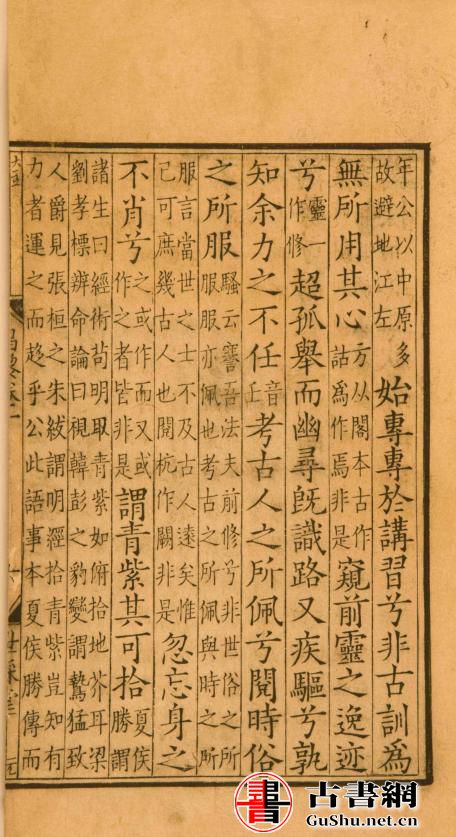 年公以中原多
故避地江左
始專專於講習兮非古訓爲
無所用其心
方从閣本古作
詁爲作焉非是
窺前靈之逸迹
兮
靈一
作修
超孤舉而幽尋旣識路又疾驅兮孰
知余力之不任
音
壬
考古人之所佩兮閱時俗
之所服
騷云謇吾法夫前修兮非世俗之所
服服亦佩也考古之所佩與時之所
服言當世之士不及古人遠矣惟
己可庶幾古人也閱杭作闕非是
忽忘身之
不肖兮
之或作而又或
作之者皆非是
謂青紫其可拾
夏侯
勝謂
諸生曰經術茍明取青紫如俯拾地芥耳梁
劉孝標辨命論曰視韓彭之豹變謂鷙猛致
人爵見張桓之朱紱謂明經拾青紫豈知有
力者運之而趍乎公此語事本夏侯勝傳而
書
古書網
GuShu.net.cn